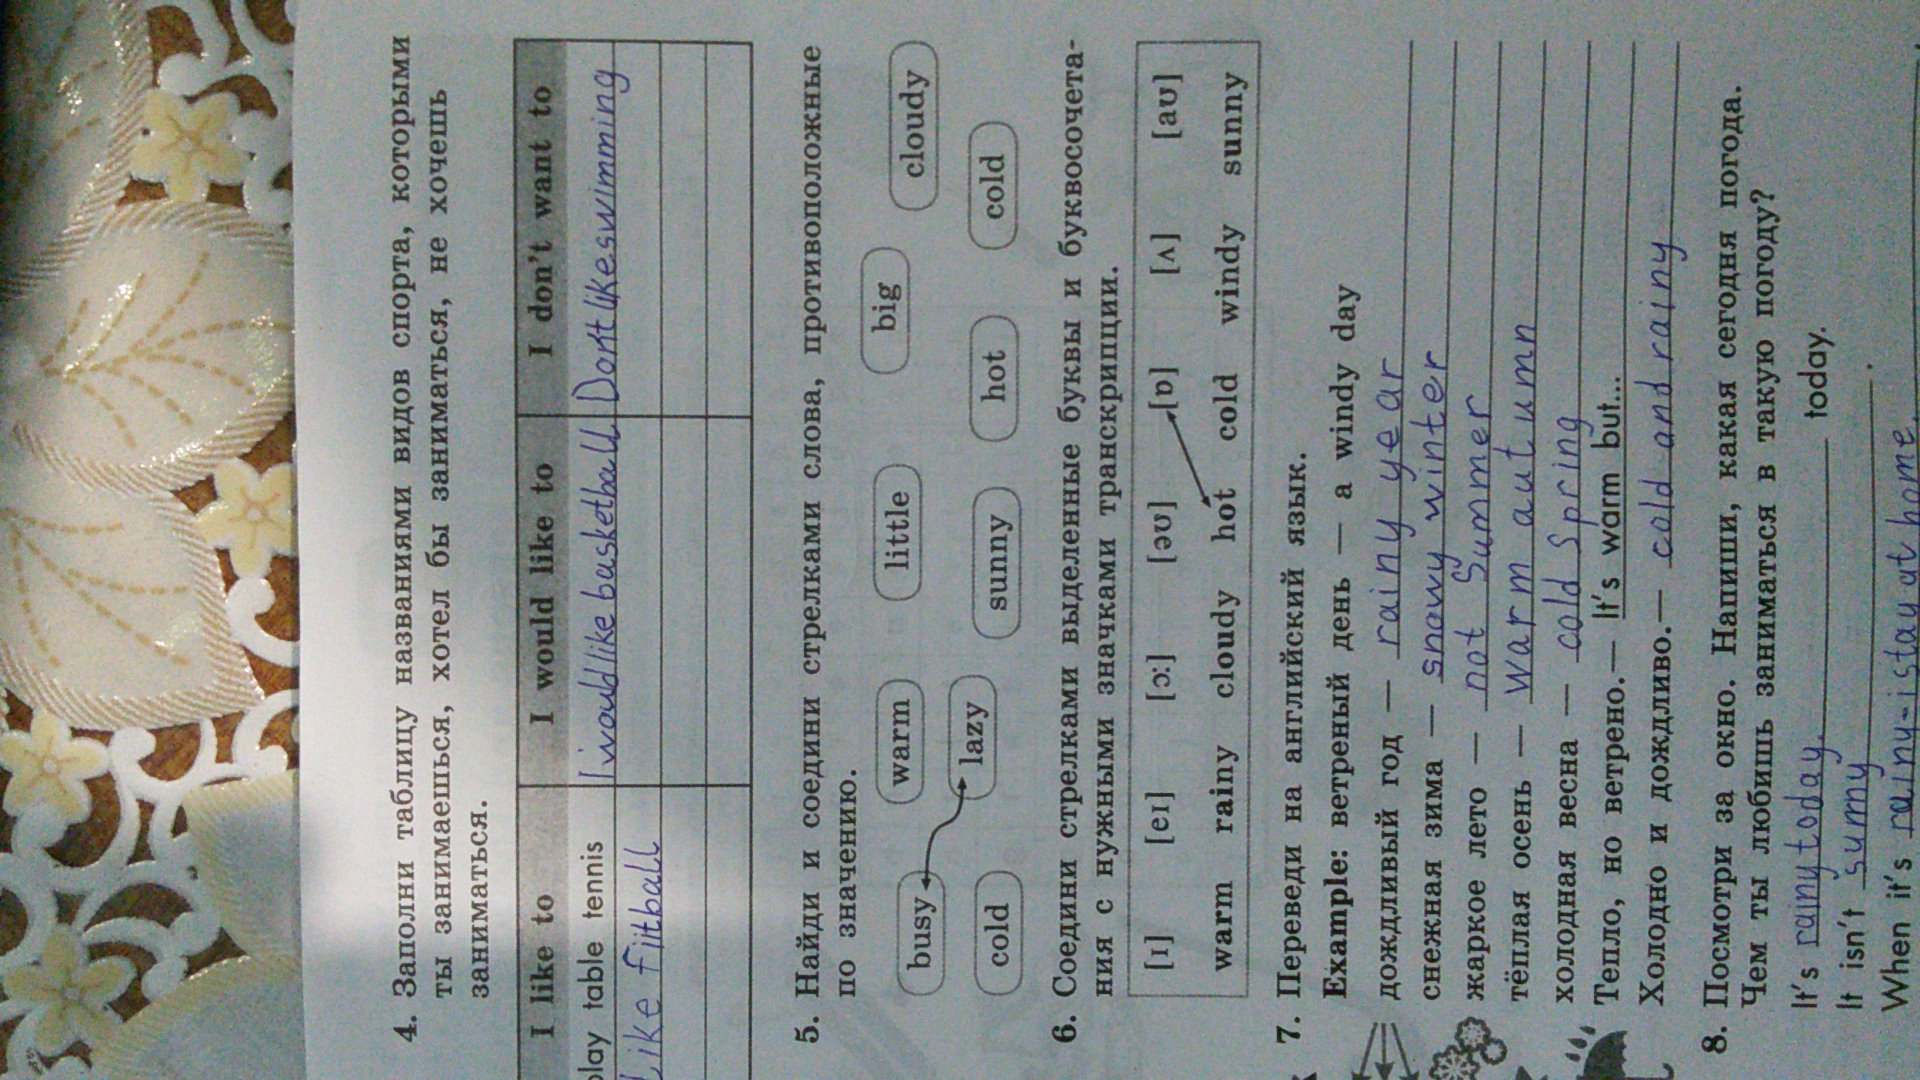 4. Заполни таблицу названиями видов спорта, которыми
ты занимаешься, хотел бы заниматься, не хочешь
заниматься.
I like to I would like to I don't want to
play table tennis I would like basketball Don't like swimming
Like Fitball
5. Найди и соедини стрелками слова, противоположные
по значению.
busy warm little big cloudy
cold lazy sunny hot cold
6. Соедини стрелками выделенные буквы и буквосочета-
ния с нужными значками транскрипции.
[ɪ] [eɪ] [ɔː] [əʊ] [ɒ] [ʌ] [aʊ]
warm rainy cloudy hot cold windy sunny
7. Переведи на английский язык.
Example: ветреный день — a windy day
дождливый год — rainy year
снежная зима — snowy winter
жаркое лето — hot Summer
тёплая осень — warm autumn
холодная весна — cold Spring
Тепло, но ветрено. — It's warm but...
Холодно и дождливо. — cold and rainy
8. Посмотри за окно. Напиши, какая сегодня погода.
Чем ты любишь заниматься в такую погоду?
It's rainy today. today.
It isn't sunny.
When it's rainy-i stay at home.